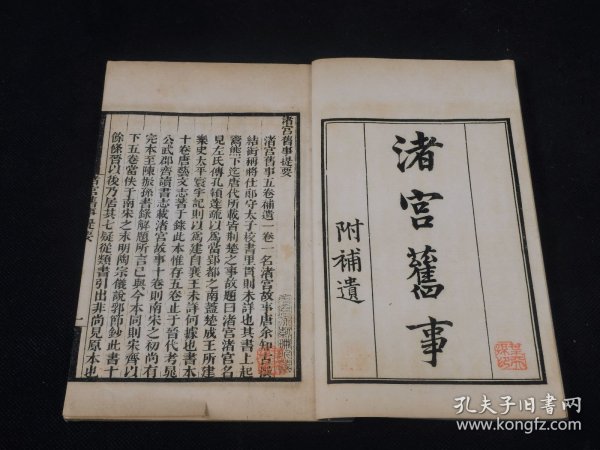 渚宮舊事
附補遺
渚宮舊事提要
渚宮舊事五卷補遺一卷一名渚宮故事唐余知古撰
結銜稱將仕郎守太子校書里貫則未詳也其書上起
鬻熊下迄唐代所載皆荆楚之事故題曰渚宮渚宮名
見左氏傳孔頴達疏以爲當郢都之南蓋楚成王所建
樂史太平寰宇記則以爲建自襄王未詳何據也書本
十卷唐藝文志著于錄此本惟存五卷止于晉代考晁
公武郡齊讀書志載渚宮故事十卷則南宋之初尚有
完本至陳振孫書錄解題所言已與今本同則宋齊以
下五卷當佚于南宋之末明陶宗儀說郛節鈔此書十
餘條晉以後乃居其七疑從類書引出非尚見原本也
一
孔夫子旧书网
www.kongfz.com